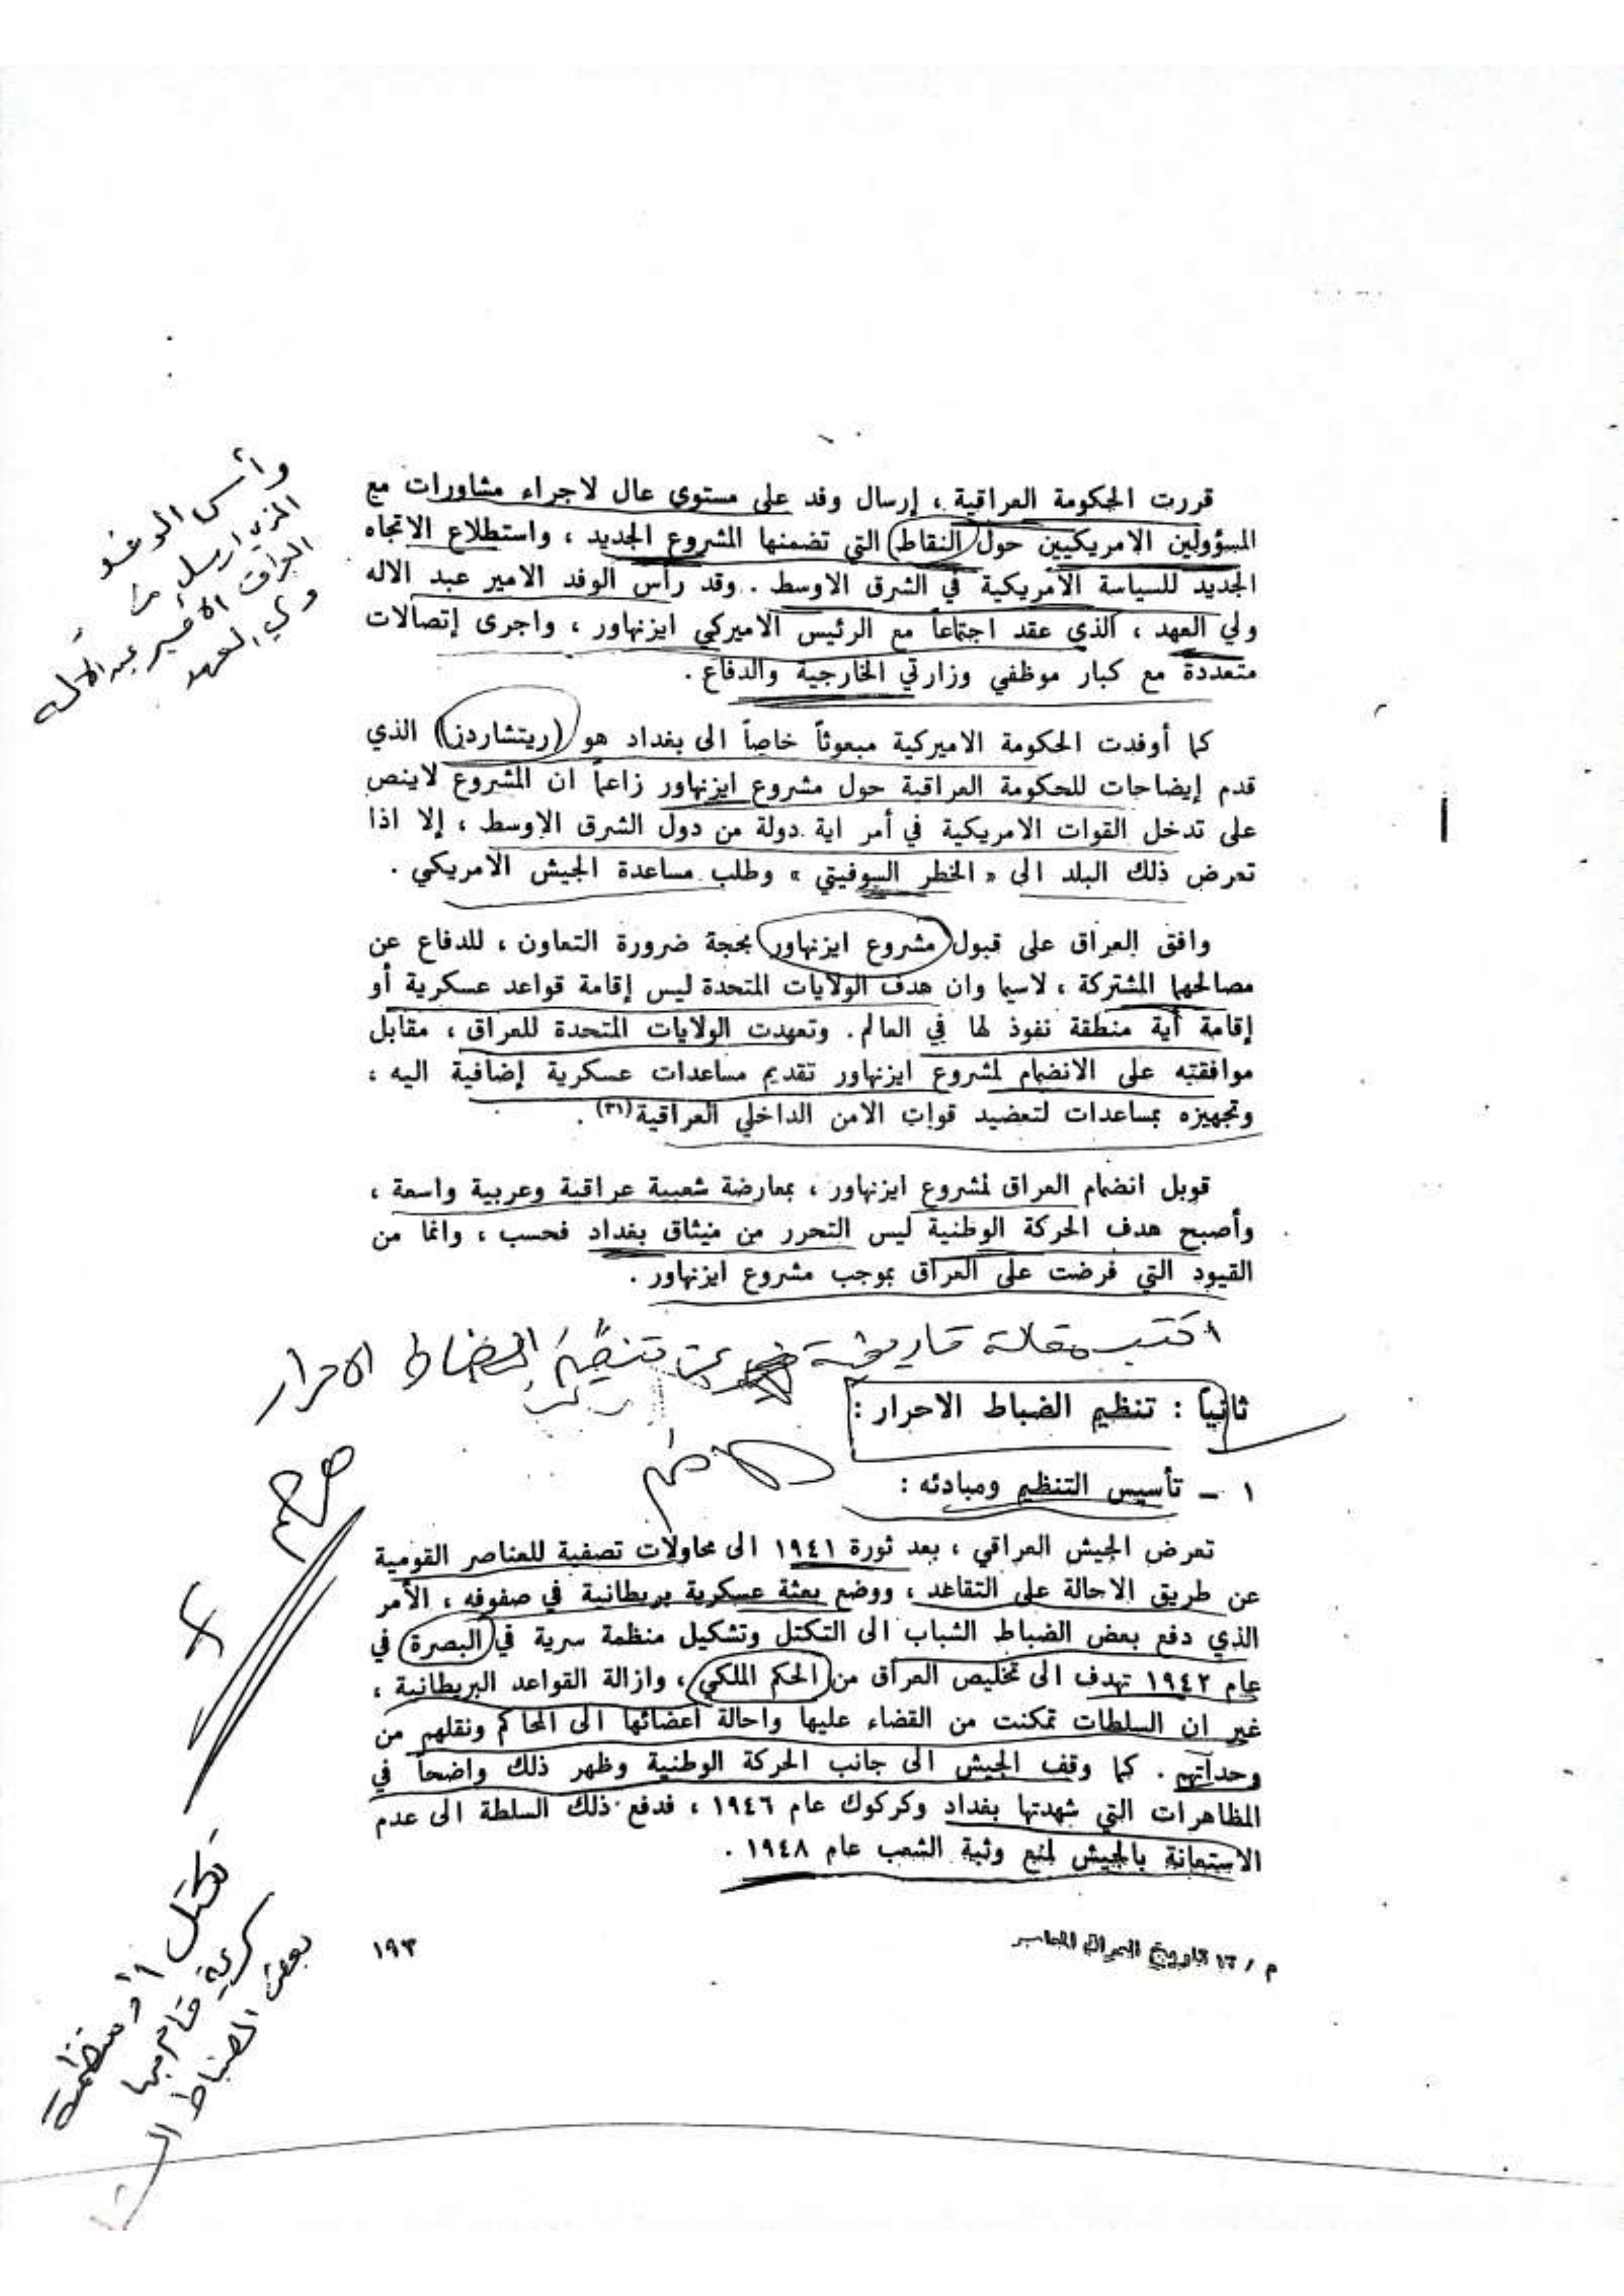 قررت الحكومة العراقية ، إرسال وفد على مستوى عال لاجراء مشاورات مع
المسؤولين الامريكيين حول النقاط التي تضمنها المشروع الجديد ، واستطلاع الاتجاه
الجديد للسياسة الامريكية في الشرق الاوسط . وقد رأس الوفد الامير عبد الاله
ولي العهد ، الذي عقد اجتماعاً مع الرئيس الاميركي ايزنهاور ، واجرى إتصالات
متعددة مع كبار موظفي وزارتي الخارجية والدفاع .
وأس الوفد
الذي ارسل من
العراق الامير عبد الاله
ولي العهد
كما أوفدت الحكومة الاميركية مبعوثاً خاصاً الى بغداد هو (ريتشاردز) الذي
قدم إيضاحات للحكومة العراقية حول مشروع ايزنهاور زاعماً ان المشروع لاينص
على تدخل القوات الامريكية في أمر اية دولة من دول الشرق الاوسط ، إلا اذا
تعرض ذلك البلد الى « الخطر السوفيتي » وطلب مساعدة الجيش الامريكي .
وافق العراق على قبول مشروع ايزنهاور بحجة ضرورة التعاون ، للدفاع عن
مصالحهما المشتركة ، لاسيما وان هدف الولايات المتحدة ليس إقامة قواعد عسكرية أو
إقامة أية منطقة نفوذ لها في العالم . وتعهدت الولايات المتحدة للعراق ، مقابل
موافقته على الانضمام لمشروع ايزنهاور تقديم مساعدات عسكرية إضافية اليه ،
وتجهيزه بمساعدات لتعضيد قوات الامن الداخلي العراقية(٣١) .
قوبل انضمام العراق لمشروع ايزنهاور ، بمعارضة شعبية عراقية وعربية واسعة ،
وأصبح هدف الحركة الوطنية ليس التحرر من ميثاق بغداد فحسب ، وانما من
القيود التي فرضت على العراق بموجب مشروع ايزنهاور .
اكتب مقالة تاريخية عن تنظيم الضباط الاحرار
ثانياً : تنظيم الضباط الاحرار :
١ ـ تأسيس التنظيم ومبادئه :
مهم
تعرض الجيش العراقي ، بعد ثورة ١٩٤١ الى محاولات تصفية للعناصر القومية
عن طريق الاحالة على التقاعد ، ووضع بعثة عسكرية بريطانية في صفوفه ، الأمر
الذي دفع بعض الضباط الشباب الى التكتل وتشكيل منظمة سرية في البصرة في
عام ١٩٤٢ تهدف الى تخليص العراق من الحكم الملكي ، وازالة القواعد البريطانية ،
غير ان السلطات تمكنت من القضاء عليها واحالة أعضائها الى المحاكم ونقلهم من
وحداتهم . كما وقف الجيش الى جانب الحركة الوطنية وظهر ذلك واضحاً في
المظاهرات التي شهدتها بغداد وكركوك عام ١٩٤٦ ، فدفع ذلك السلطة الى عدم
الاستعانة بالجيش لمنع وثبة الشعب عام ١٩٤٨ .
تكتل أو منظمة
سرية قام بها
بعض الضباط
م / ١٣ تاريخ العراق المعاصر
١٩٣